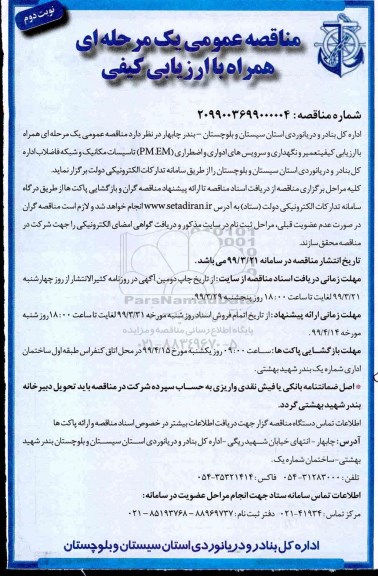 نوبت دوم
مناقصه عمومی یک مرحله ای
همراه با ارزیابی کیفی
شماره مناقصه: 2099003699000004
اداره کل بنادر و دریانوردی استان سیستان و بلوچستان - بندر چابهار در نظر دارد مناقصه عمومی یک مرحله ای همراه
با ارزیابی کیفیتعمیر و نگهداری و سرویس های ادواری و اضطراری (PM.EM) تاسیسات مکانیک و شبکه فاضلاب اداره
کل بنادر و دریانوردی استان سیستان و بلوچستان را از طریق سامانه تدارکات الکترونیکی دولت برگزار نماید.
کلیه مراحل برگزاری مناقصه از دریافت اسناد مناقصه تا ارائه پیشنهاد مناقصه گران و بازگشایی پاکت ها از طریق درگاه
سامانه تدارکات الکترونیکی دولت (ستاد) به آدرس www.setadiran.ir انجام خواهد شد و لازم است مناقصه گران
در صورت عدم عضویت قبلی، مراحل ثبت نام در سایت مذکور و دریافت گواهی امضای الکترونیکی را جهت شرکت در
مناقصه محقق سازند.
تاریخ انتشار مناقصه در سامانه 99/3/21 می باشد.
مهلت زمانی دریافت اسناد مناقصه از سایت: از تاریخ چاپ دومین آگهی در روزنامه کثیرالانتشار از روز چهارشنبه
99/3/21 لغایت تا ساعت 18:00 روز پنجشنبه 99/3/29
مهلت زمانی ارائه پیشنهاد: از تاریخ اتمام فروش اسناد روز شنبه مورخه 99/3/31 لغایت تا ساعت 18:00 روز شنبه
مورخه 99/4/14.
مهلت بازگشایی پاکت ها: ساعت 09:00 روز یکشنبه مورخ 99/4/15 در محل اتاق کنفراس طبقه اول ساختمان
اداری شماره یک بندر شهید بهشتی.
* اصل ضمانتنامه بانکی یا فیش نقدی واریزی به حساب سپرده شرکت در مناقصه باید تحویل دبیرخانه
بندر شهید بهشتی گردد.
اطلاعات تماس دستگاه مناقصه گزار جهت دریافت اطلاعات بیشتر در خصوص اسناد مناقصه و ارائه پاکت ها
آدرس: چابهار - انتهای خیابان شهید ریگی - اداره کل بنادر و دریانوردی استان سیستان و بلوچستان بندر شهید
بهشتی - ساختمان شماره یک.
تلفن: 31283000-054 فاکس: 35321414-054
اطلاعات تماس سامانه ستاد جهت انجام مراحل عضویت در سامانه:
مرکز تماس: 41934-021 دفتر ثبت نام: 88969737 - 85193768-021
اداره کل بنادر و دریانوردی استان سیستان و بلوچستان